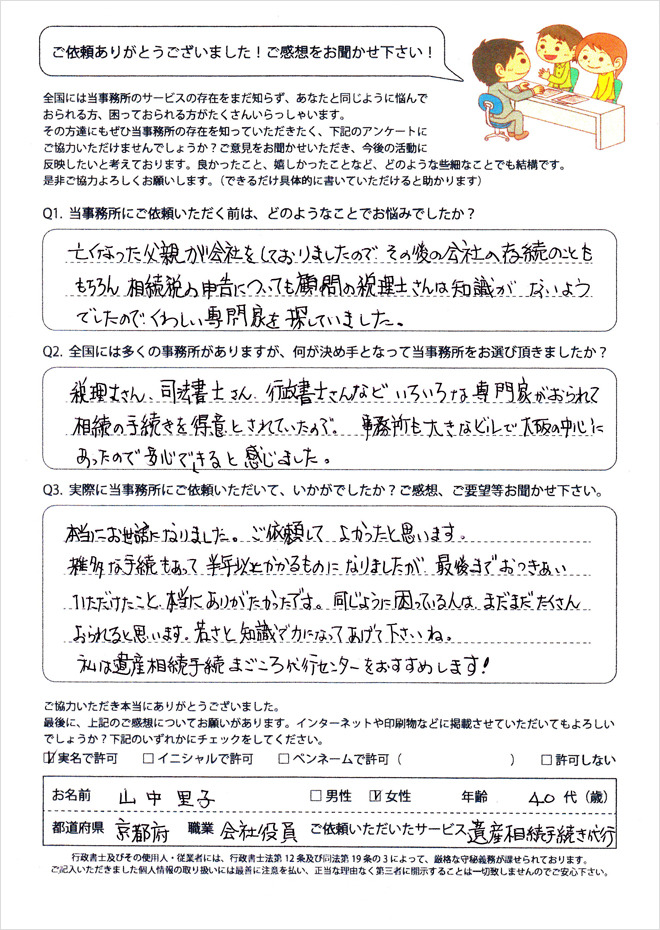 ご依頼ありがとうございました！ご感想をお聞かせ下さい！
全国には当事務所のサービスの存在をまだ知らず、あなたと同じように悩んで
おられる方、困っておられる方がたくさんいらっしゃいます。
その方達にもぜひ当事務所の存在を知っていただきたく、下記のアンケートに
ご協力いただけませんでしょうか？ご意見をお聞かせいただき、今後の活動に
反映したいと考えております。良かったこと、嬉しかったことなど、どのような些細なことでも結構です。
是非ご協力よろしくお願いします。（できるだけ具体的に書いていただけると助かります）
Q1. 当事務所にご依頼いただく前は、どのようなことでお悩みでしたか？
亡くなった父親が会社をしておりましたので その後の会社の存続のことも
もちろん 相続税の申告についても顧問の税理士さんは知識が ないよう
でしたので、くわしい専門家を探していました。
Q2. 全国には多くの事務所がありますが、何が決め手となって当事務所をお選び頂きましたか？
税理士さん、司法書士さん、行政書士さんなど いろいろな専門家がおられて
相続の手続きを得意とされていたので。 事務所も大きなビルで大阪の中心に
あったので安心できると感じました。
Q3. 実際に当事務所にご依頼いただいて、いかがでしたか？ご感想、ご要望等お聞かせ下さい。
本当にお世話になりました。ご依頼して よかったと思います。
雑多な手続もあって 半年以上かかるものになりましたが 最後までおつきあい
いただけたこと、本当にありがたかったです。同じように困っている人は まだまだたくさん
おられると思います。若さと知識で力になってあげて下さいね。
私は遺産相続手続まごころ代行センターをおすすめします！
ご協力いただき本当にありがとうございました。
最後に、上記のご感想についてお願いがあります。インターネットや印刷物などに掲載させていただいてもよろしい
でしょうか？下記のいずれかにチェックをしてください。
☑実名で許可 □イニシャルで許可 □ペンネームで許可（ ） □許可しない
お名前 山中里子 □男性 ☑女性 年齢 40代（歳）
都道府県 京都府 職業 会社役員 ご依頼いただいたサービス 遺産相続手続き代行
行政書士及びその使用人・従業者には、行政書士法第12条及び同法第19条の3によって、厳格な守秘義務が課せられております。
ご記入いただきました個人情報の取り扱いには最善に注意を払い、正当な理由なく第三者に開示することは一切致しませんのでご安心下さい。